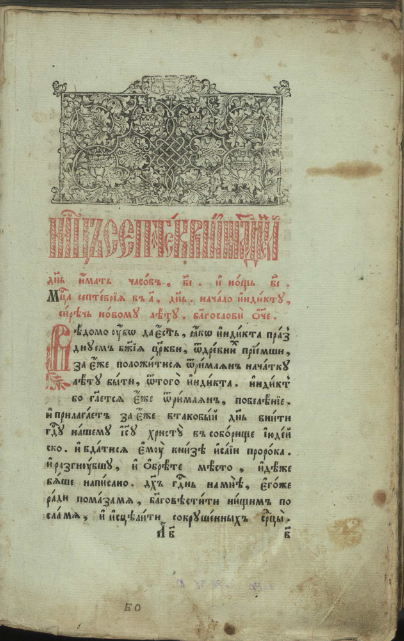 мц҃ъ септе́врїй
дн҃ь и҆́мать часо́въ, в҃і. и҆ но́щь в҃і.
Мц҃а септе́врїѧ въ а҃, дн҃ь. нача́ло і҆нди́кту,
си́рѣчь но́вому лѣ́ту, благослови́ ѻ҆́ч҃е.
Вѣ́домо ѹ҆́бѡ да є҆́сть, ꙗ҆́кѡ и҆нди́кта пра́з
днуемъ бж҃їѧ цр҃кви, ѿ дре́внихъ прїи́мши,
за є҆́же положи́тисѧ ѿ ри́млѧнъ нача́тку
лѣ́ту бы́ти, ѿ того̀ и҆нди́кта. и҆нди́ктъ
бо гл҃етсѧ є҆́же ѿ ри́млѧнъ, повелѣ́нїе.
и҆ прилага́етъ за є҆́же в такоѵы́й дн҃ь вни́ти
гд҇ꙋ на́шемꙋ і҆и҃сꙋ христꙋ̀ въ собо́рище і҆ꙋде́й
ско. и҆ вда́тисѧ є҆мꙋ̀ кни́зѣ и҆са́їи проро́ка.
и҆ разгнꙋ́вшꙋ, и҆ ѡ҆брѣ́те мѣ́сто, и҆дѣ́же
бѧ́ше напи́сано. дх҃ъ гд҇нь на мнѣ̀, є҆гѡ́же
ра́ди пома́за мѧ, благовѣсти́ти ни́щимъ по
сла́ мѧ, и҆ и҆сцѣли́ти сокрꙋше́нныхъ ср҃цы.
б҃
50